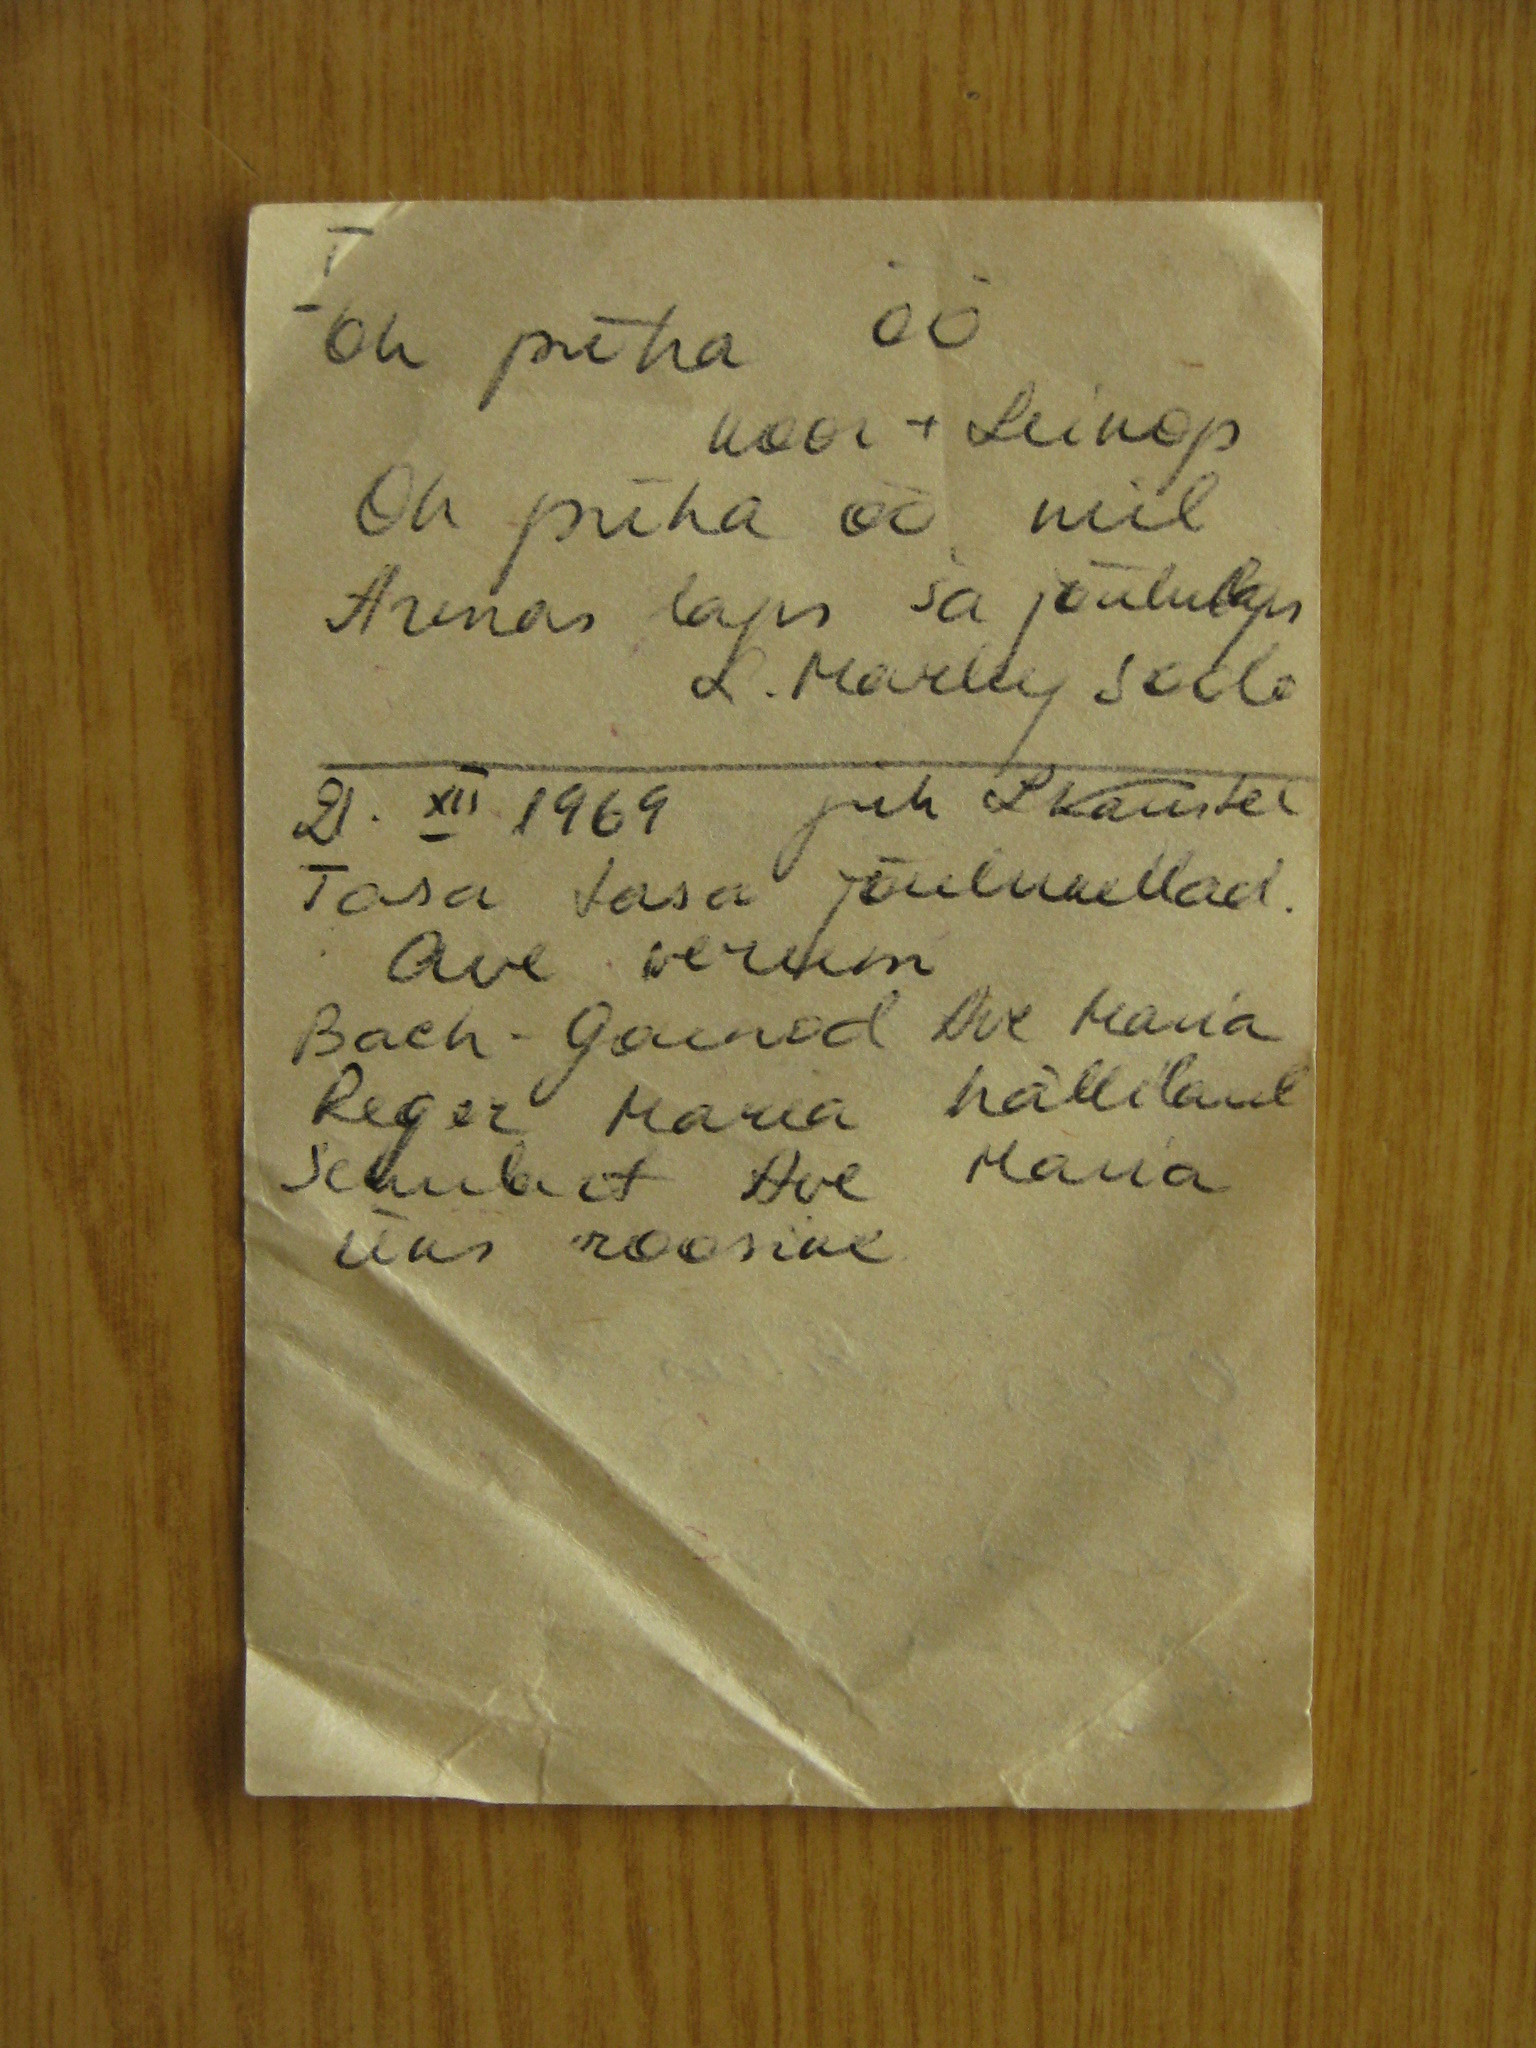 I
Oh püha öö
koor + Leinop
Oh püha öö viil
Armas laps sa jõululaps
L. Markey soolo
21. XII 1969 juh L Kaustel
Tasa tasa jõulukellad.
Ave verum
Bach - Gounod Ave Maria
Reger Maria hällilaul
Schubert Ave Maria
Üks roosike